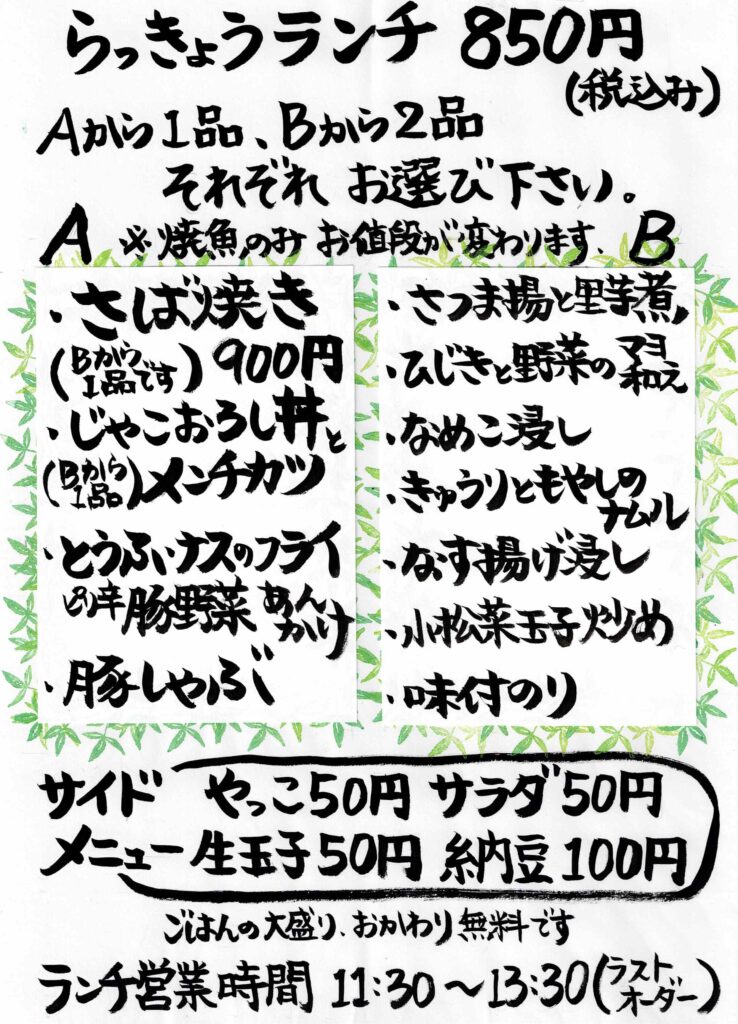 らっきょうランチ 850円
(税込み)
Aから1品、Bから2品
それぞれ お選び下さい。
A ※焼魚のみ お値段が変わります、 B
・さば焼き
(Bから1品です) 900円
・じゃこおろし丼と
(Bから1品)メンチカツ
・とうふ、ナスのフライ
ピリ辛豚野菜あんかけ
・豚しゃぶ
・さつま揚と里芋煮
・ひじきと野菜のマヨ和え
・なめこ浸し
・きゅうりともやしの
ナムル
・なす揚げ浸し
・小松菜玉子炒め
・味付のり
サイド やっこ50円 サラダ50円
メニュー 生玉子50円 納豆100円
ごはんの大盛り、おかわり無料です
ランチ営業時間 11:30〜13:30(ラストオーダー)